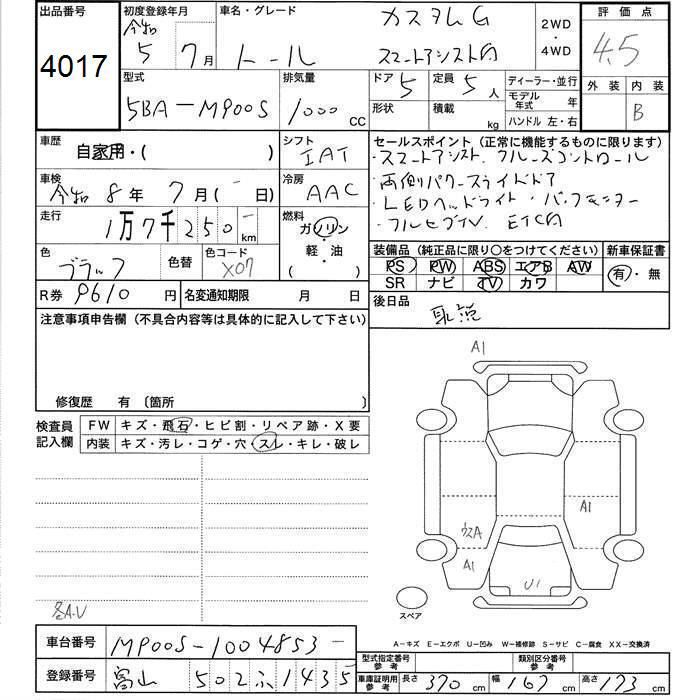 出品番号
4017
初度登録年月
令和
5 7月
車名・グレード
トール
カスタムG
スマートアシスト付
2WD
・
4WD
評価点
4.5
外装 内装
B
型式
5BA-M900S
排気量
1000 CC
ドア 5
定員 5 人
ディーラー・並行
モデル年式 年
形状
積載 kg
ハンドル 左・右
車歴
自家用・( )
シフト
IAT
セールスポイント (正常に機能するものに限ります)
・スマートアシスト. クルーズコントロール
・両側パワースライドドア
・LEDヘッドライト・バックモニター
・フルセグTV. ETC付
車検
令和 8年 7月(- 日)
冷房
AAC
走行
1万7千250- km
燃料
ガソリン
・
軽・油
( )
色
ブラック
色替
色コード
X07
装備品 (純正品に限り○をつけてください)
PS PW ABS エアB AW
SR ナビ TV カワ
新車保証書
有・無
R券 9610 円
名変通知期限 月 日
後日品
取説
注意事項申告欄 (不具合内容等は具体的に記入して下さい)
修復歴 有 〔箇所 〕
検査員
記入欄
FW キズ・飛石・ヒビ割・リペア跡・X要
内装 キズ・汚レ・コゲ・穴・スレ・キレ・破レ
A1
A1
ウスA
A1
U1
スペア
各A.U
A-キズ E-エクボ U-凹み W-補修跡 S-サビ C-腐食 XX-交換済
車台番号 M900S-1004853-
登録番号 富山 502ふ1435
型式指定番号
参考
類別区分番号
参考
車庫証明用
参考
長さ 370 cm
幅 167 cm
高さ 173 cm